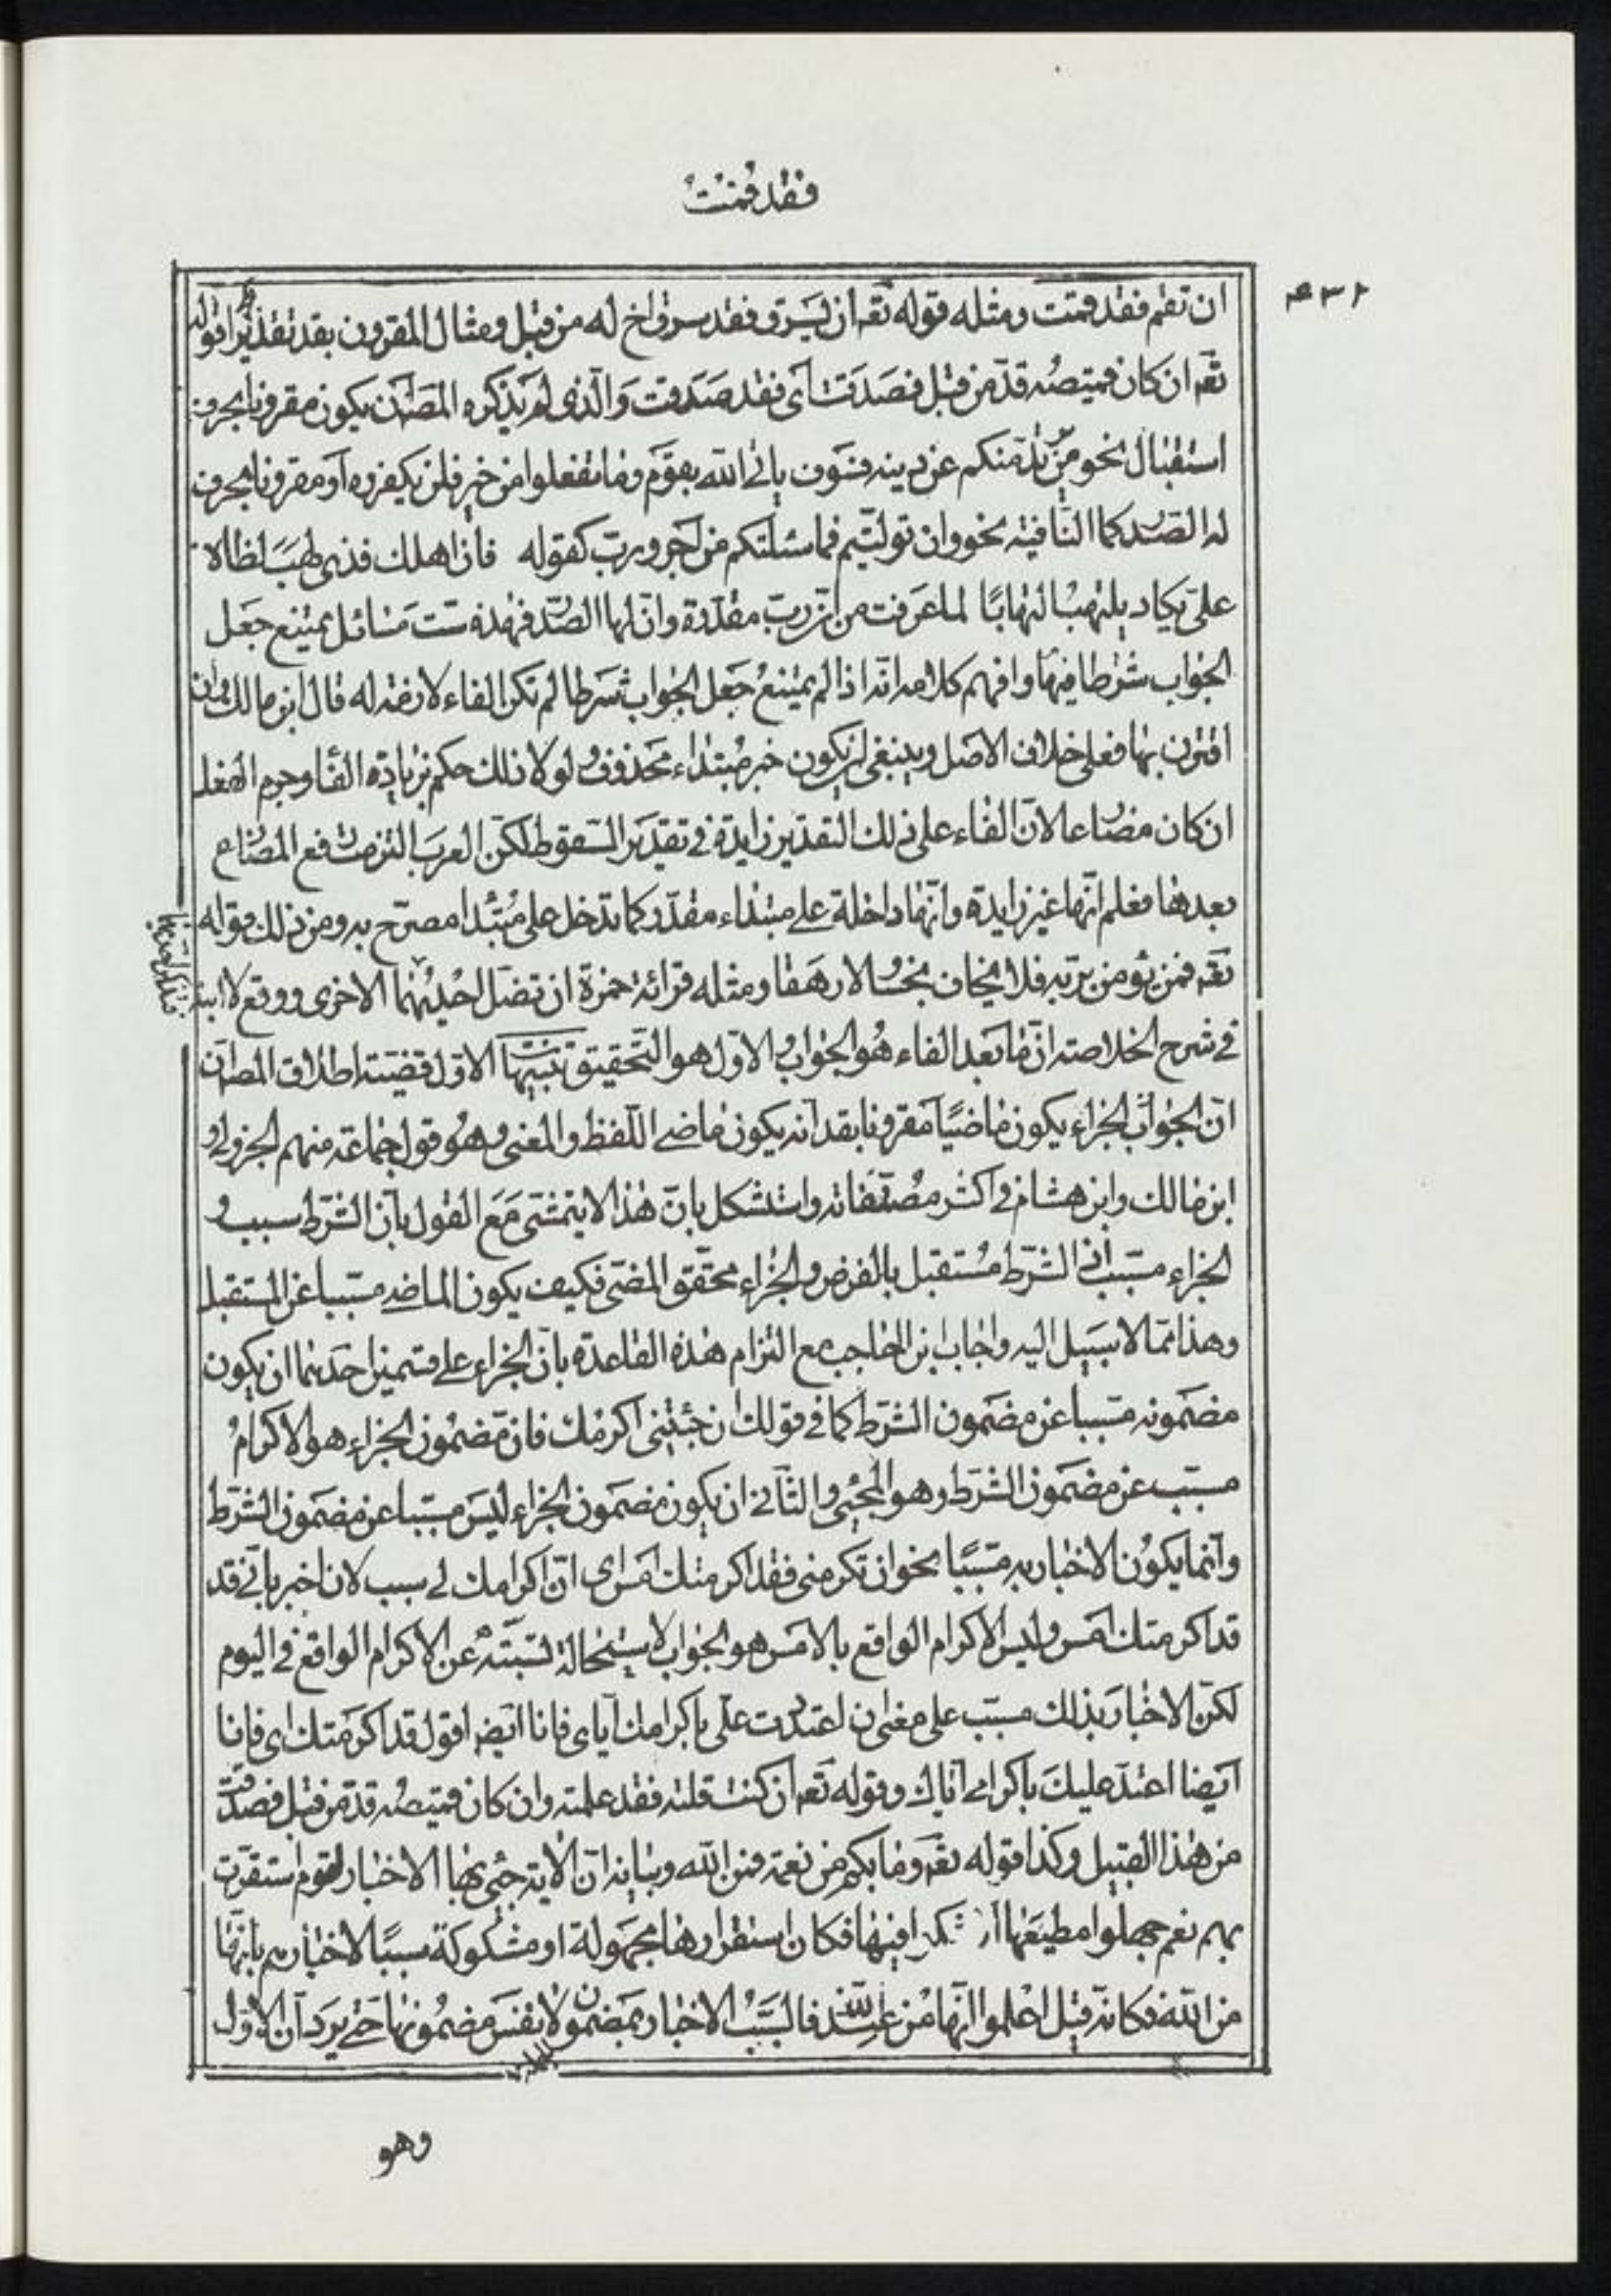 فقد قمت
ان تقم فقد قمت ومثله قوله تعه ان يسرق فقد سرق اخ له من قبل ومثال المقرون بقد تقديرا قوله
تعه ان كان قميصه قدّ من قبل فصدقت اى فقد صدقت والّذى لم يذكره المص ان يكون مقرونا بحرف
استقبال نحو من يرتدّ منكم عن دينه فسوف ياتى الله بقوم وما تفعلوا من خير فلن يكفروه او مقرونا بحرف
له الصّدر كما النّافية نحو وان تولّيتم فما سئلتكم من اجر وربّ كقوله فان اهلك فذى لهب لظاه
علىّ يكاد يلتهب التهابا لما عرفت من انّ ربّ مقدّرة وانّ لها الصّدر فهذه ستّ مسائل يمتنع جعل
الجواب شرطا فيها وافهم كلامه انّه اذا لم يمتنع جعل الجواب شرطا لم تكن الفاء لازمة له قال ابن مالك وان
اقترن بها فعلى خلاف الاصل وينبغى ان يكون خبر مبتداء محذوف ولولا ذلك حكم بزيادة الفاء وجزم الفعل
ان كان مضارعا لانّ الفاء على ذلك التقدير زايدة فى تقدير السّقوط لكن العرب التزمت رفع المضارع
بعدها فعلم انّها غير زايدة وانّها داخلة على مبتداء مقدّر كما تدخل على مبتدا مصرّح به ومن ذلك قوله
تعه فمن يؤمن بربّه فلا يخاف بخسا ولا رهقا ومثله قرائة حمزة ان تضلّ احديهما الاخرى ووقع لابنه
فى شرح الخلاصة انّ ما بعد الفاء هو الجواب والاوّل هو التّحقيق تنبيهات الاوّل قضيّة اطلاق المص ان
انّ الجواب الجزاء يكون ماضيا مقرونا بقد انه يكون ماضى اللّفظ والمعنى وهو قول جماعة منهم الجزولى و
ابن مالك وابن هشام فى اكثر مصنّفاته واستشكل بانّ هذا لا يتمشى مع القول بانّ الشّرط سبب و
الجزاء مسبّب اذ الشّرط مستقبل بالفرض والجزاء محقّق المضىّ فكيف يكون الماضى مسبّبا عن المستقبل
وهذا ممّا لا سبيل اليه واجاب ابن الحاجب مع التزام هذه القاعدة بانّ الجزاء على قسمين احدهما ان يكون
مضمونه مسببا عن مضمون الشّرط كما فى قولك ان جئتنى اكرمك فانّ مضمون الجزاء هو الاكرام
مسبّب عن مضمون الشّرط وهو المجيى والثّانى ان يكون مضمون الجزاء ليس مسبّبا عن مضمون الشّرط
وانّما يكون الاخبار به مسبّبا نحو ان تكرمنى فقد اكرمتك امس اى انّ اكرامك لى سبب لان اخبر بانى قد
قد اكرمتك امس وليس الاكرام الواقع بالامس هو الجواب لاستحالة تسببه عن الاكرام الواقع فى اليوم
لكنّ الاخبار بذلك مسبّب على معنى ان اعتددت علىّ باكرامك ايّاى فانا ايضا اقول قد اكرمتك اى فانا
ايضا اعتدّ عليك باكرامى ايّاك وقوله تعه ان كنت قلته فقد علمته وان كان قميصه قدّ من قبل فصدقت
من هذا القبيل وكذا قوله تعه وما بكم من نعمة فمن الله وبيانه انّ الاية جئ بها الاخبار لقوم استقرّت
بهم نعم جهلوا معطيها او شكوا فيها فكان استقرارها مجهولة او مشكوكة سببا لاخبارهم بانها
من الله فكانه قيل اعلموا انّها من عند الله فالسّبب الاخبار بمضمون لا نفس مضمونها حتى يرد ان الاوّل
وهو